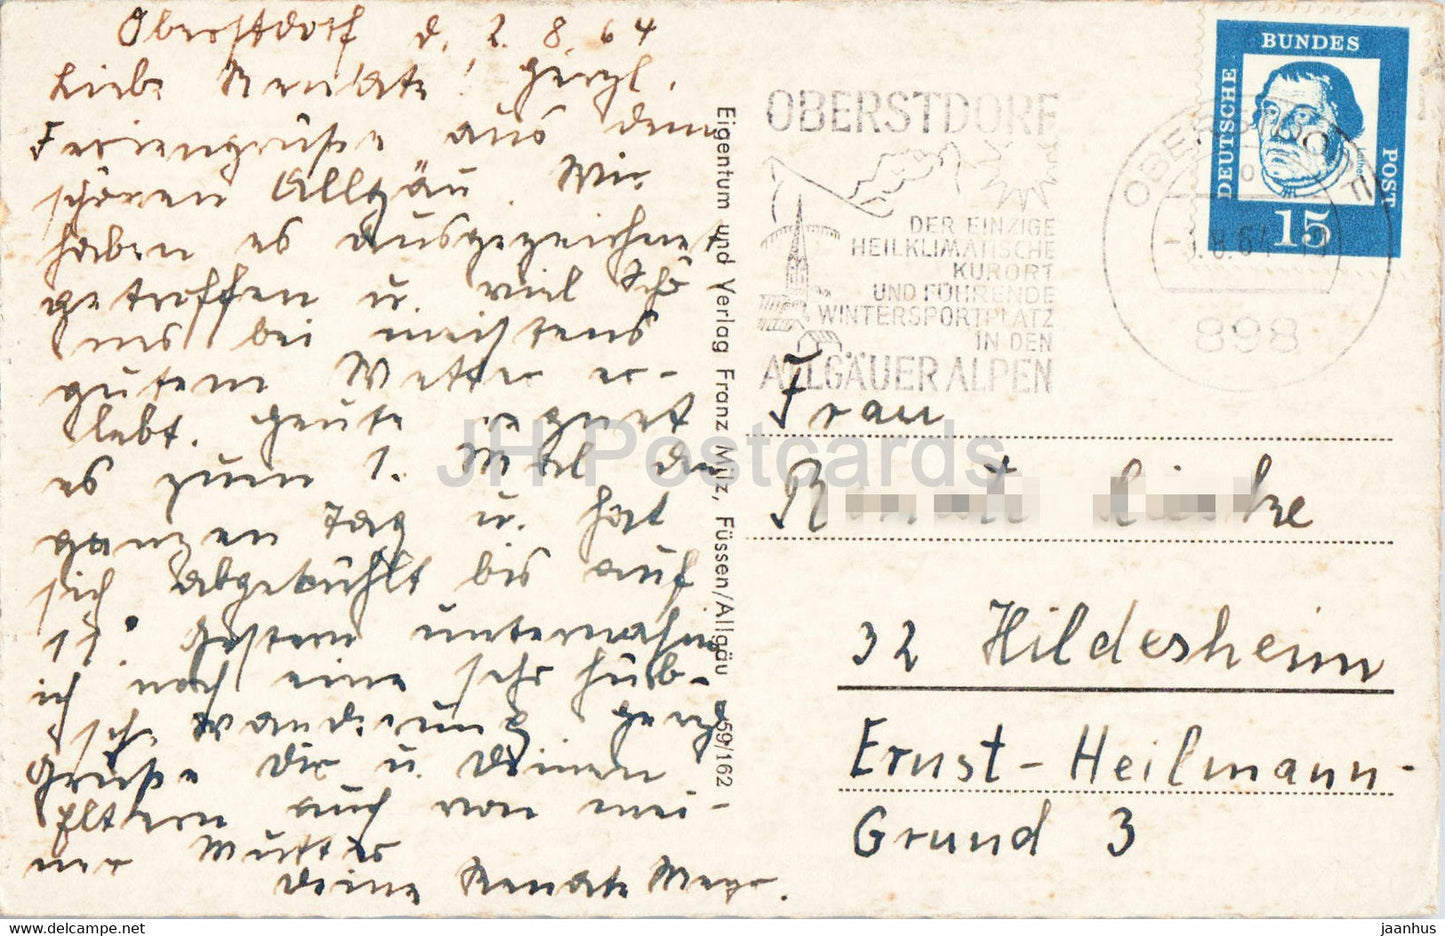 Oberstdorf d. 2. 8. 64
Liebe Renate! Herzl.
Feriengrüße aus dem
schönen Allgäu. Wir
haben es ausgezeichnet
getroffen u. viel Schö-
nes bei meistens
gutem Wetter er-
lebt. Heute regnet
es zum 1. Mal den
ganzen Tag u. hat
sich abgekühlt bis auf
11° Gestern unternahm
ich noch eine sehr hüb-
sche Wanderung. Herzl.
Grüße Dir u. Deinen
Eltern auch von mei-
ner Mutter
Deine Renate
Eigentum und Verlag Franz Milz, Füssen/Allgäu 59/162
OBERSTDORF
DER EINZIGE
HEILKLIMATISCHE
KURORT
UND FÜHRENDE
WINTERSPORTPLATZ
IN DEN
ALLGÄUER ALPEN
OBERSTDORF
-3.8.64
898
DEUTSCHE
BUNDES
POST
Luther
15
Frau
32 Hildesheim
Ernst-Heilmann-
Grund 3
JH Postcards
hippostcard.com
jaanhus